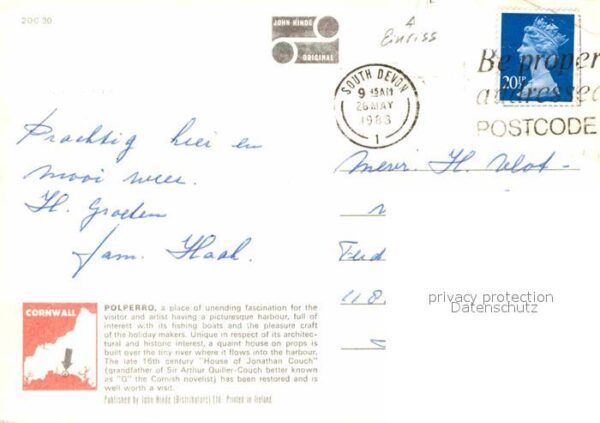 2DC 30
JOHN HINDE
ORIGINAL
Einriss
SOUTH DEVON
9 15AM
26 MAY
1983
1
20½P
Be proper
addressed
POSTCODE
Prachtig hier en
mooi weer.
H. Groeten
fam. Haak.
Mevr. H. Vlot-
CORNWALL
POLPERRO, a place of unending fascination for the
visitor and artist having a picturesque harbour, full of
interest with its fishing boats and the pleasure craft
of the holiday makers. Unique in respect of its architec-
tural and historic interest, a quant house on props is
built over the tiny river where it flows into the harbour.
The late 16th century "House of Jonathan Couch"
(grandfather of Sir Arthur Quiller-Couch better known
as "Q" the Cornish novelist) has been restored and is
well worth a visit.
Published by John Hinde (Distributors) Ltd. Printed in Ireland.
privacy protection
Datenschutz